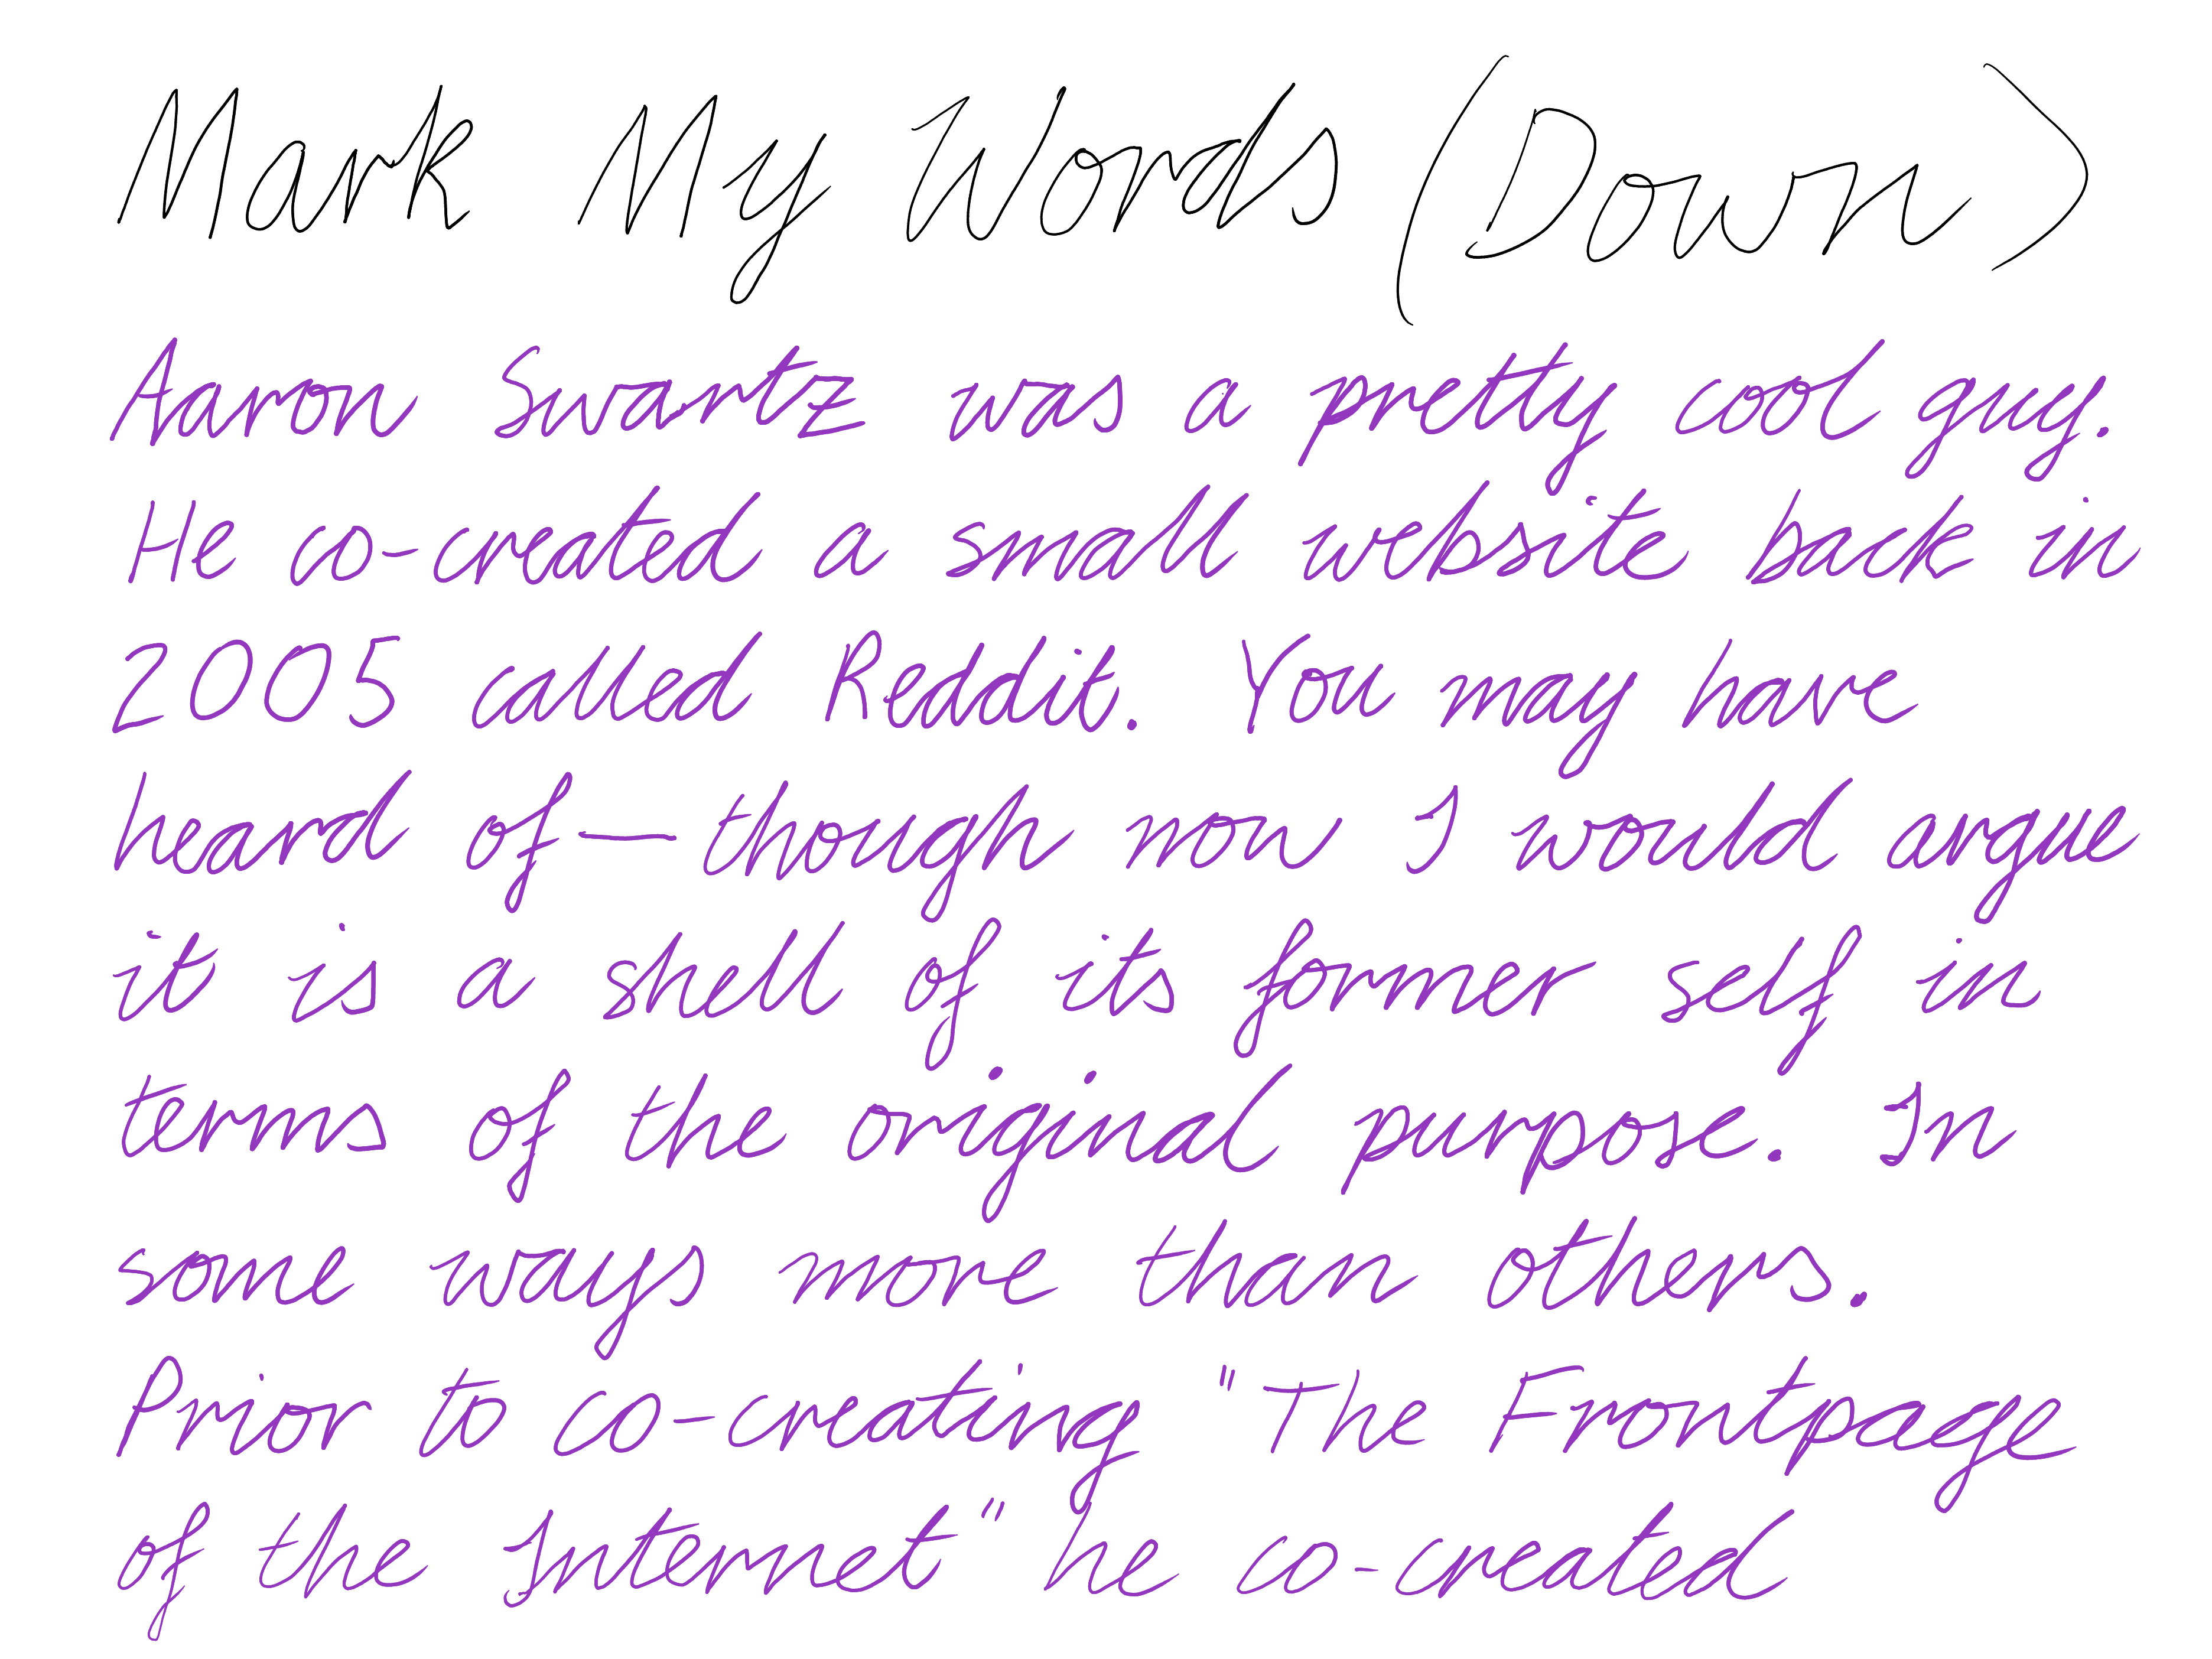 Mark My Words (Down)
Aaron Swartz was a pretty cool guy.
He co-created a small website back in
2005 called Reddit. You may have
heard of—though now I would argue
it is a shell of its former self in
terms of the original purpose. In
some ways more than others.
Prior to co-creating "The Frontpage
of the Internet" he co-created